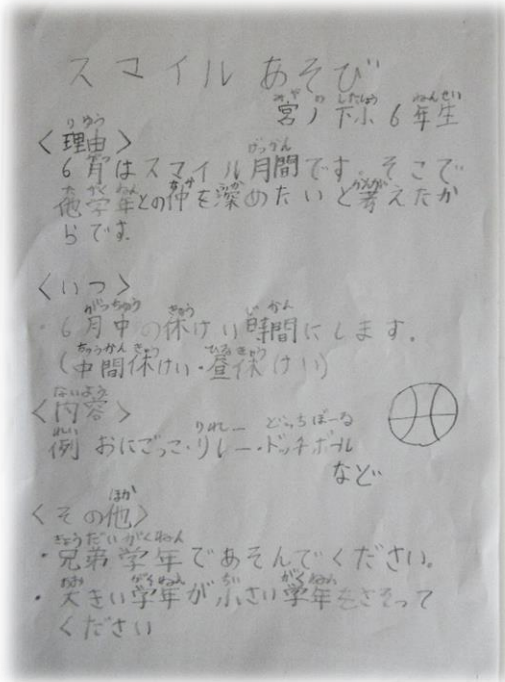 スマイルあそび
宮ノ下小6年生
<理由>
6月はスマイル月間です。そこで
他学年との仲を深めたいと考えたか
らです。
<いつ>
・6月中の休けい時間にします。
(中間休けい・昼休けい)
<内容>
例 おにごっこ・リレー・ドッチボール
など
<その他>
・兄弟学年であそんでください。
・大きい学年が小さい学年をさそって
ください